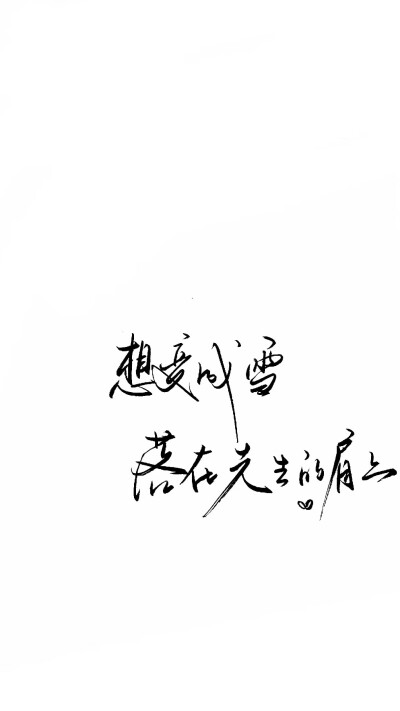 想变成雪
落在先生的肩上